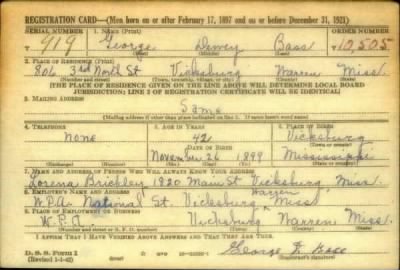 REGISTRATION CARD—(Men born on or after February 17, 1897 and on or before December 31, 1921)
SERIAL NUMBER 1. NAME (Print) ORDER NUMBER
U 919 George Dewey Bass 10,505
(First) (Middle) (Last)
2. PLACE OF RESIDENCE (Print)
806 3rd North St Vicksburg Warren Miss.
(Number and street) (Town, township, village, or city) (County) (State)
[THE PLACE OF RESIDENCE GIVEN ON THE LINE ABOVE WILL DETERMINE LOCAL BOARD
JURISDICTION; LINE 2 OF REGISTRATION CERTIFICATE WILL BE IDENTICAL]
3. MAILING ADDRESS
Same
(Mailing address if other than place indicated on line 2. If same insert word same)
4. TELEPHONE 5. AGE IN YEARS 6. PLACE OF BIRTH
None 42 Vicksburg
DATE OF BIRTH (Town or county)
November 26 1899 Mississippi
(Exchange) (Number) (Mo.) (Day) (Yr.) (State or country)
7. NAME AND ADDRESS OF PERSON WHO WILL ALWAYS KNOW YOUR ADDRESS
Lorena Brickley 1920 Main St Vicksburg Miss.
8. EMPLOYER'S NAME AND ADDRESS
Warren
W.P.A. National St. Vicksburg Miss
9. PLACE OF EMPLOYMENT OR BUSINESS
W.P.A. Vicksburg Warren Miss.
(Number and street or R. F. D. number) (Town) (County) (State)
I AFFIRM THAT I HAVE VERIFIED ABOVE ANSWERS AND THAT THEY ARE TRUE.
D. S. S. Form 1
(Revised 1-1-42) (over) George D. Bass